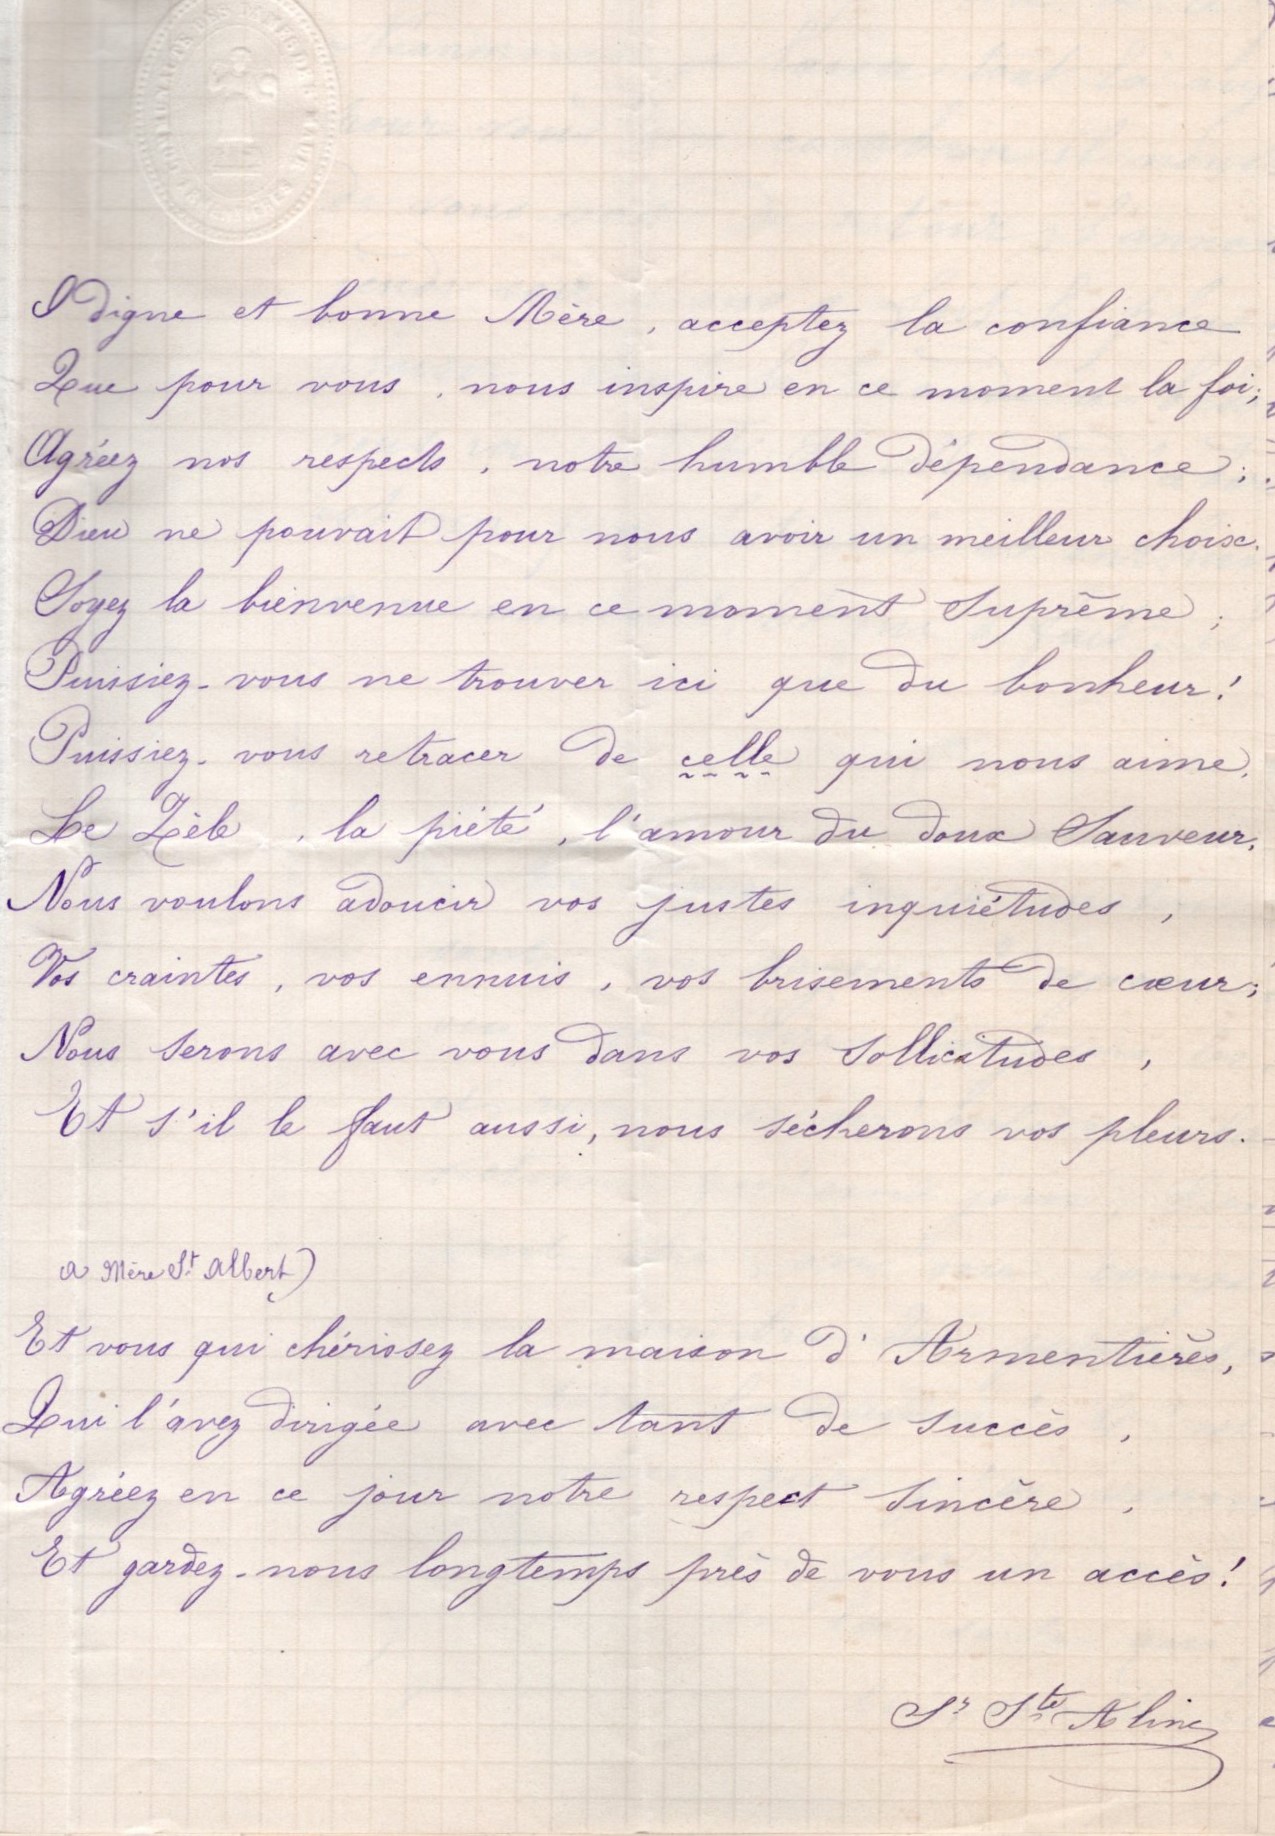 O digne et bonne Mère, acceptez la confiance
Que pour vous, nous inspire en ce moment la foi;
Agréez nos respects, notre humble dépendance;
Dieu ne pouvait pour nous avoir un meilleur choix.
Soyez la bienvenue en ce moment suprême;
Puissiez-vous ne trouver ici que du bonheur!
Puissiez-vous retracer de celle qui nous aime,
Le Zèle, la piété, l'amour du doux Sauveur,
Nous voulons adoucir vos justes inquiétudes,
Vos craintes, vos ennuis, vos brisements de cœur;
Nous serons avec vous dans vos sollicitudes,
Et s'il le faut aussi, nous sécherons vos pleurs.
a Mère St Albert)
Et vous qui chérissez la maison d'Armentières,
Qui l'avez dirigée avec tant de succès,
Agréez en ce jour notre respect sincère,
Et gardez-nous longtemps près de vous un accès!
Sr Ste Aline